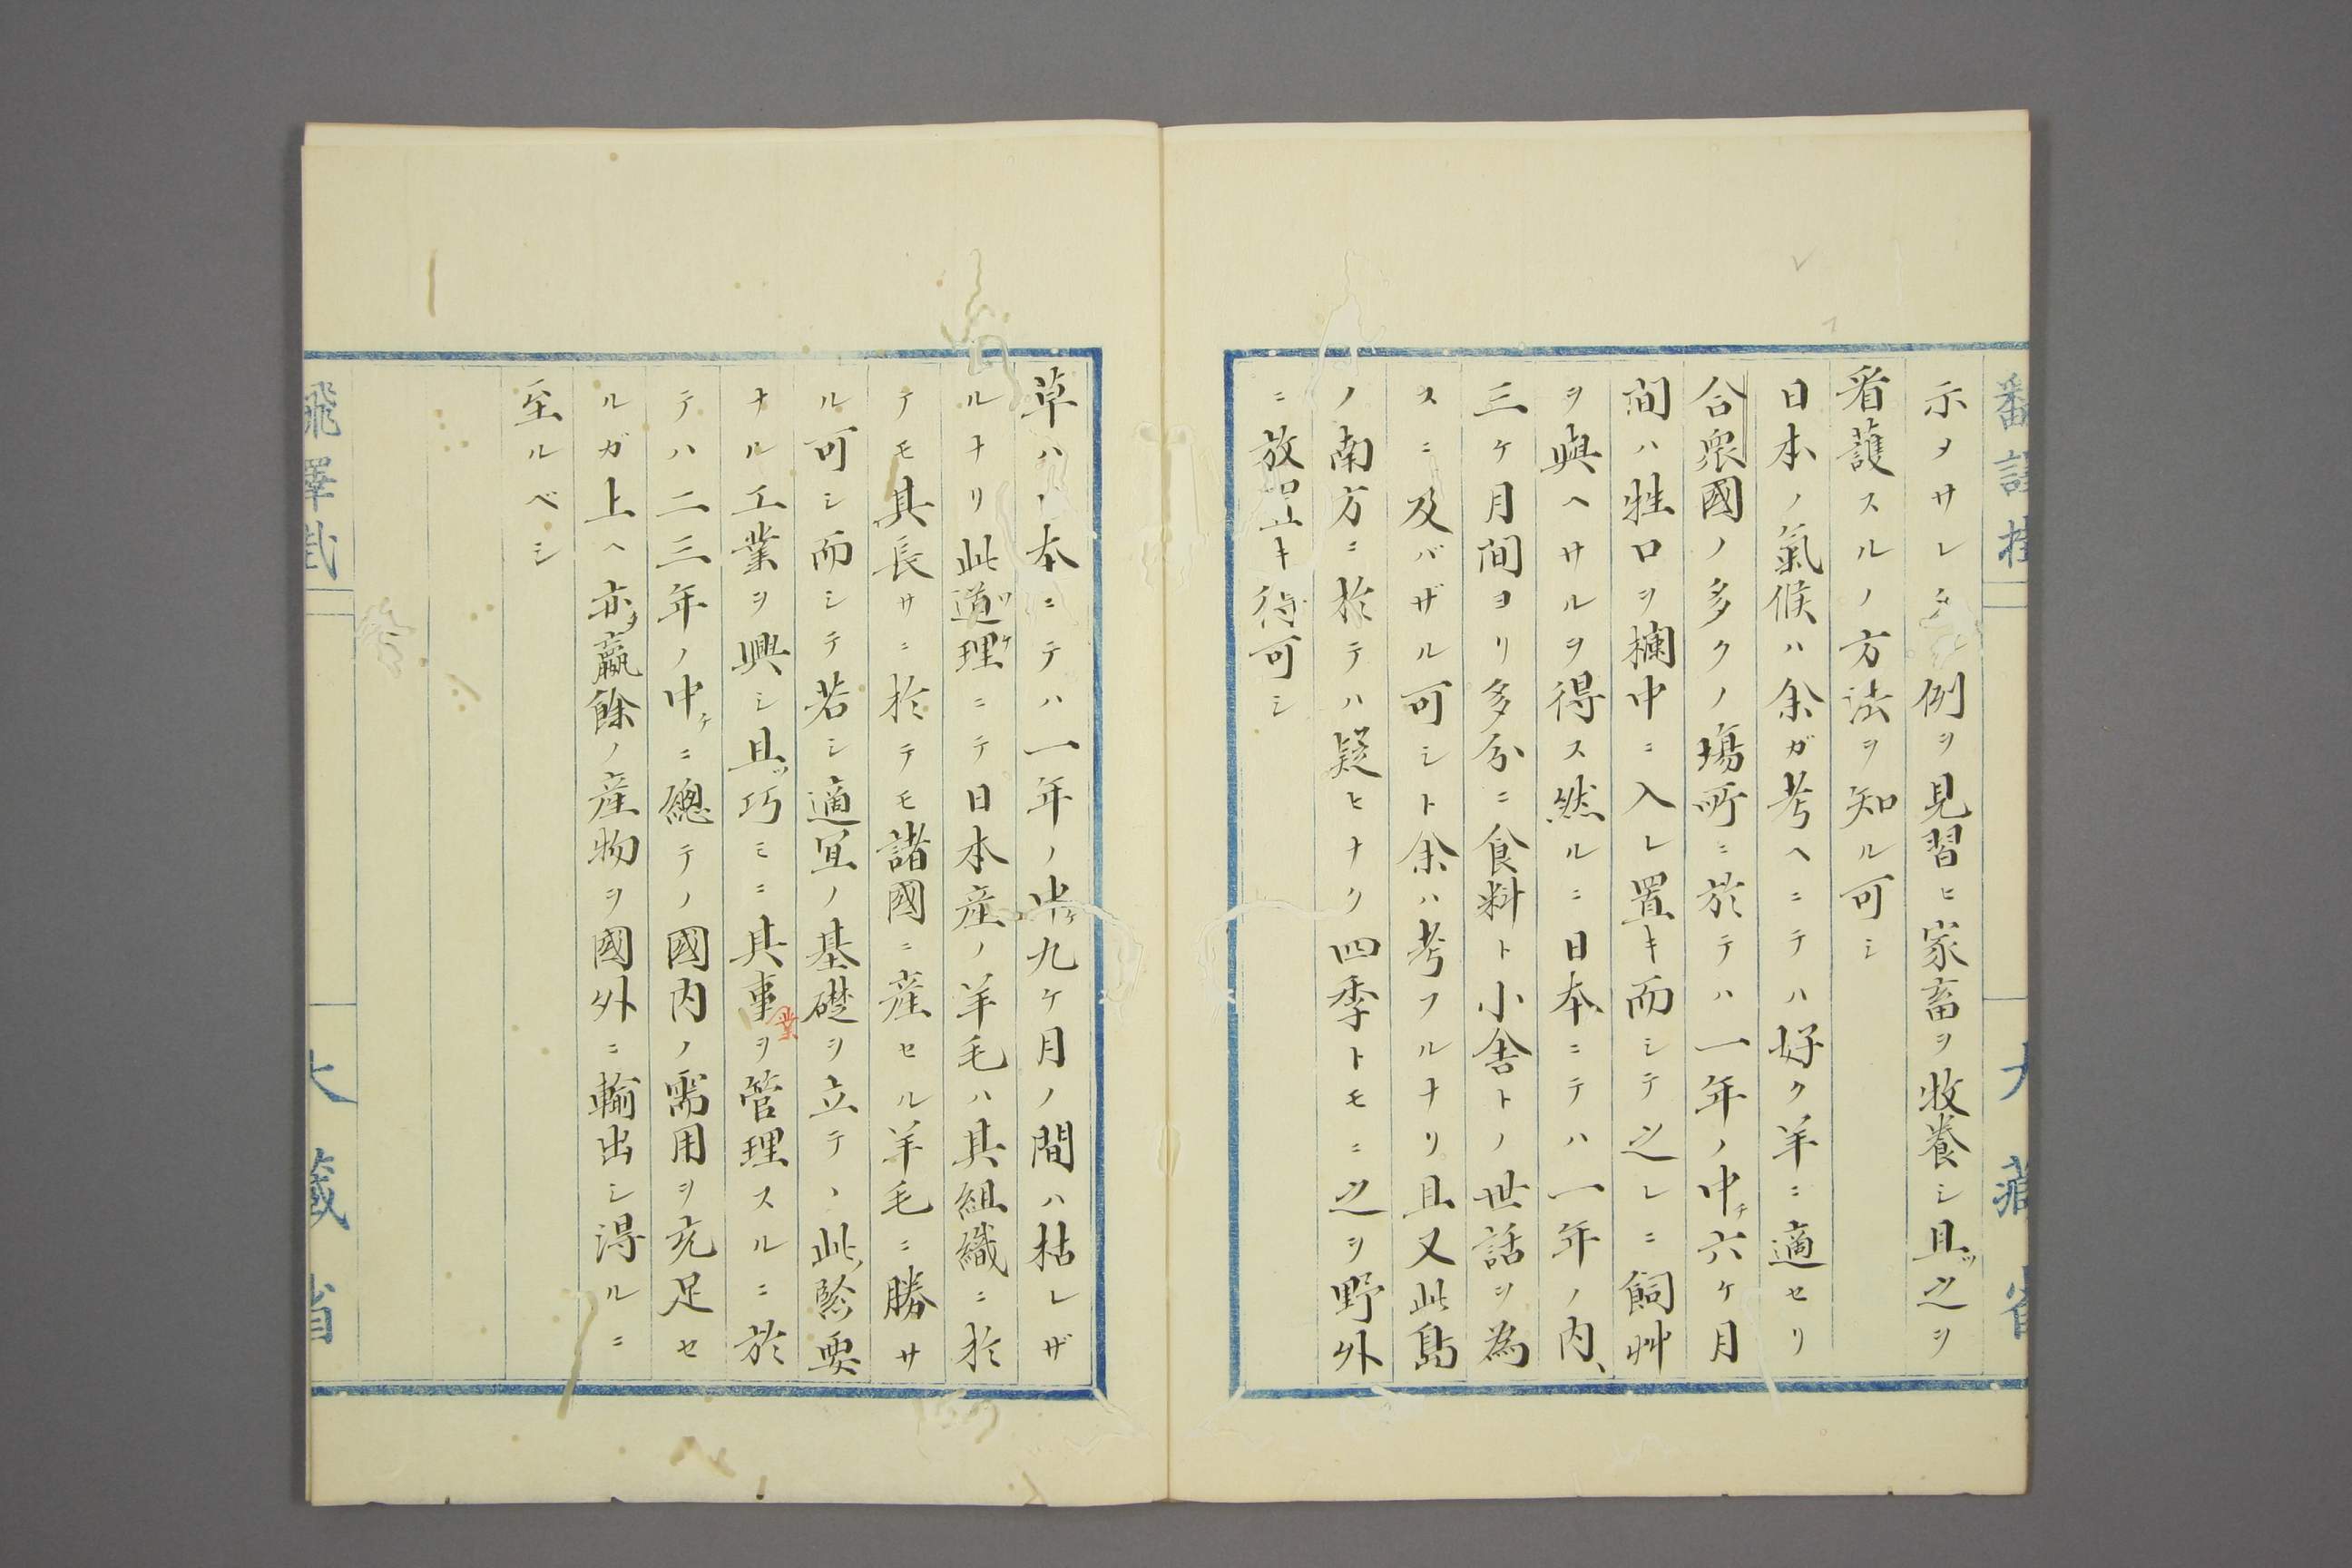 示メサレ例ヲ見習ヒ家畜ヲ牧養シ且ッ之ヲ
看護スルノ方法ヲ知ル可シ
日本ノ氣候ハ余ガ考ヘニテハ好ク羊ニ適セリ
合衆國ノ多クノ塲所ニ於テハ一年ノ中チ六ケ月
間ハ牲口ヲ欄中ニ入レ置キ而シテ之レニ飼艸
ヲ與ヘサルヲ得ス然ルニ日本ニテハ一年ノ内、
三ケ月間ヨリ多分ニ食料ト小舎トノ世話ヲ為
スニ及バザル可シト余ハ考フルナリ且又此島
ノ南方ニ於テハ疑ヒナク四季トモニ之ヲ野外
ニ放置キ得可シ
草ハ本ニテハ一年ノ中チ九ケ月ノ間ハ枯レザ
ルナリ此道理ニテ日本産ノ羊毛ハ其組織ニ於
テモ其長サニ於テモ諸國ニ産セル羊毛ニ勝サ
ル可シ而シテ若シ適宜ノ基礎ヲ立テ、此緊要
ナル工業ヲ興シ且ッ巧ミニ其事業ヲ管理スルニ於
テハ二三年ノ中チニ總テノ國内ノ需用ヲ充足セ
ルガ上ヘ亦タ贏餘ノ産物ヲ國外ニ輸出シ得ルニ
至ルベシ
大藏省